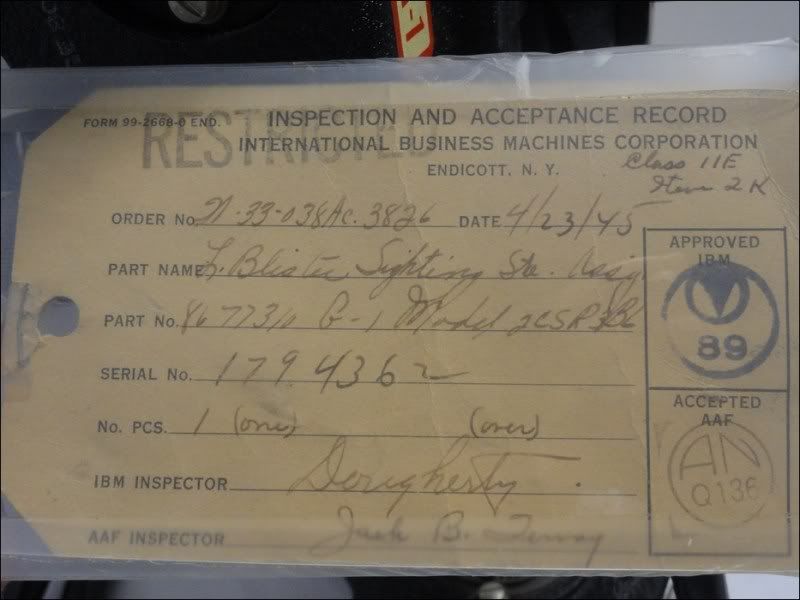 FORM 99-2668-0 END.
RESTRICTED
INSPECTION AND ACCEPTANCE RECORD
INTERNATIONAL BUSINESS MACHINES CORPORATION
ENDICOTT, N. Y.
Class 11E
Item 2K
ORDER No. 33-038Ac. 3826 DATE 4/23/45
PART NAME L. Blister Sighting Sta. Assy
PART No. G-1 Model
SERIAL No. 1794362
No. PCS. 1 (one) (over)
IBM INSPECTOR Dougherty
AAF INSPECTOR Jack B.
APPROVED
IBM
89
ACCEPTED
AAF
AN
Q136